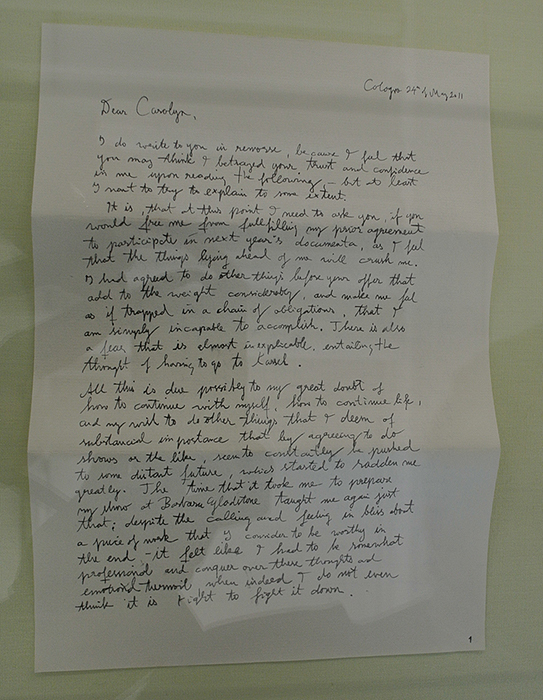 Cologne 24th of May 2011
Dear Carolyn,
I do write to you in remorse, because I feel that
you may think I betrayed your trust and confidence
in me upon reading the following – but at least
I want to try to explain to some extent.
It is, that at this point I need to ask you, if you
would free me from fulfilling my prior agreement
to participate in next year's documenta, as I feel
that the things lying ahead of me will crush me.
I had agreed to do other things before your offer that
add to the weight considerably, and make me feel
as if trapped in a chain of obligations, that I
am simply incapable to accomplish. There is also
a fear that is almost inexplicable, entailing the
thought of having to go to Kassel.
All this is due possibly to my great doubt of
how to continue with myself, how to continue life,
and my wish to do other things that I deem of
substancial importance that by agreeing to do
shows or the like, seem to constantly be pushed
to some distant future, which started to sadden me
greatly. The time that it took me to prepare
my show at Barbara Gladstone taught me again just
that; despite the calling and feeling in bliss about
a piece of work that I consider to be worthy in
the end – it felt like I had to be somewhat
professional and conquer over these thoughts and
emotional turmoil when indeed I do not even
think it is right to fight it down.
1